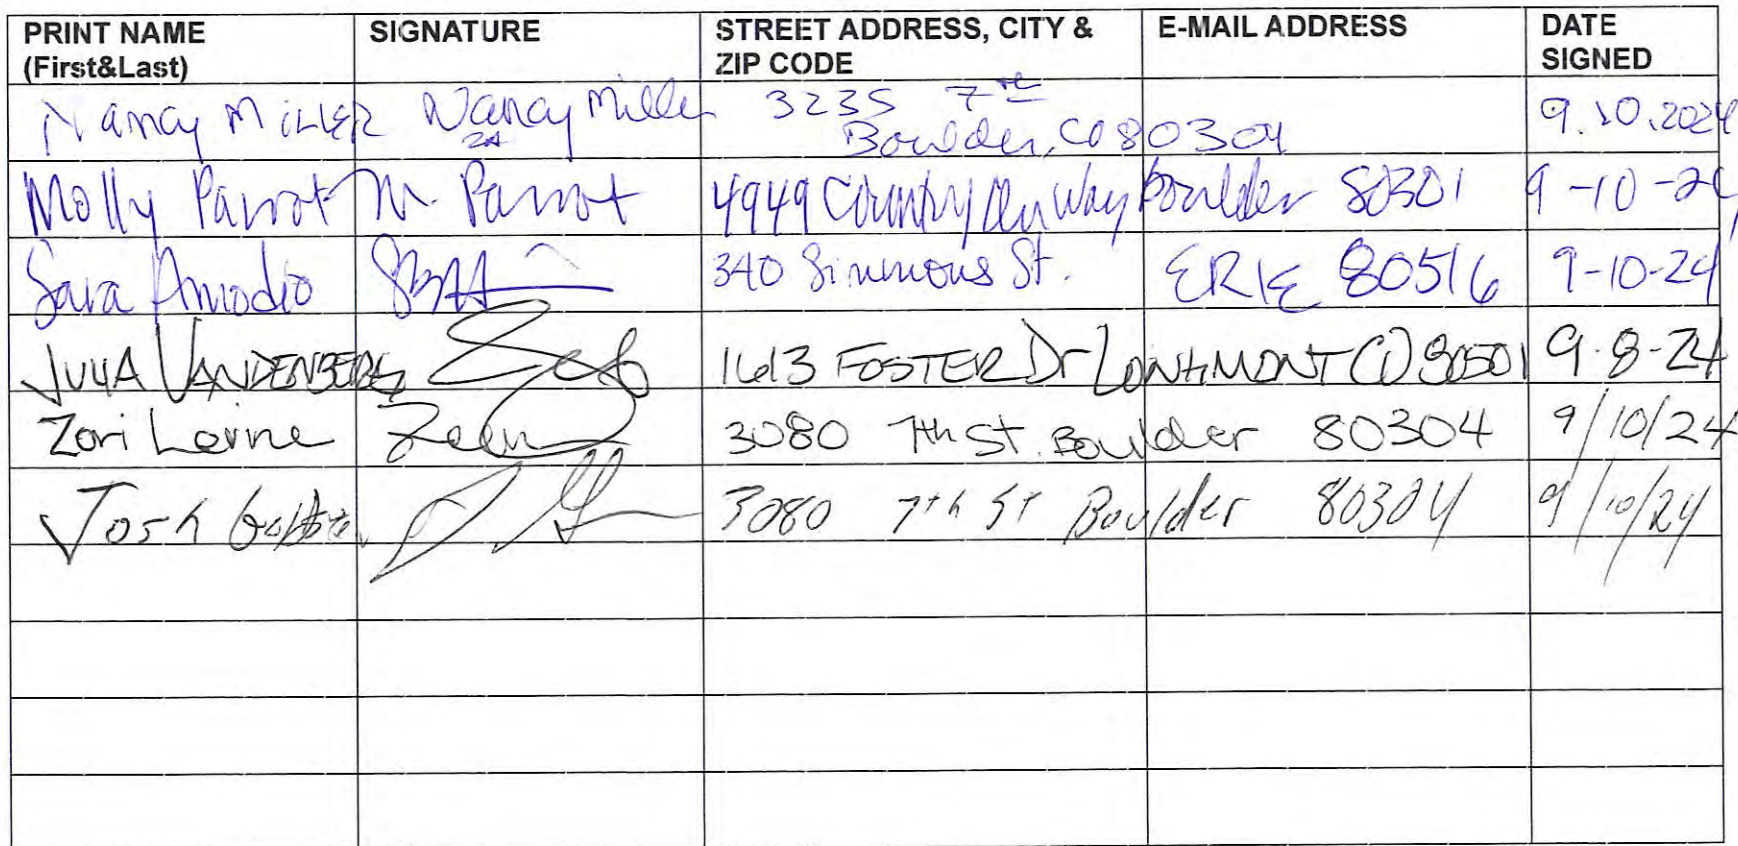 PRINT NAME SIGNATURE STREET ADDRESS, CITY & E-MAIL ADDRESS DATE
(First&Last) ZIP CODE SIGNED
Nancy MILLER Nancy Miller 3235 7th 9.10.2024
Boulder, CO 80304
Molly Parrot M. Parrot 4949 Country Way Boulder 80301 9-10-24
Sara Amodio 340 Simmons St. ERIE 80516 9-10-24
JULIA VANDENBERG 1613 FOSTER Dr LONGMONT CO 80501 9-8-24
Zori Levine 3080 7th St. Boulder 80304 9/10/24
Josh 3080 7th St Boulder 80304 9/10/24